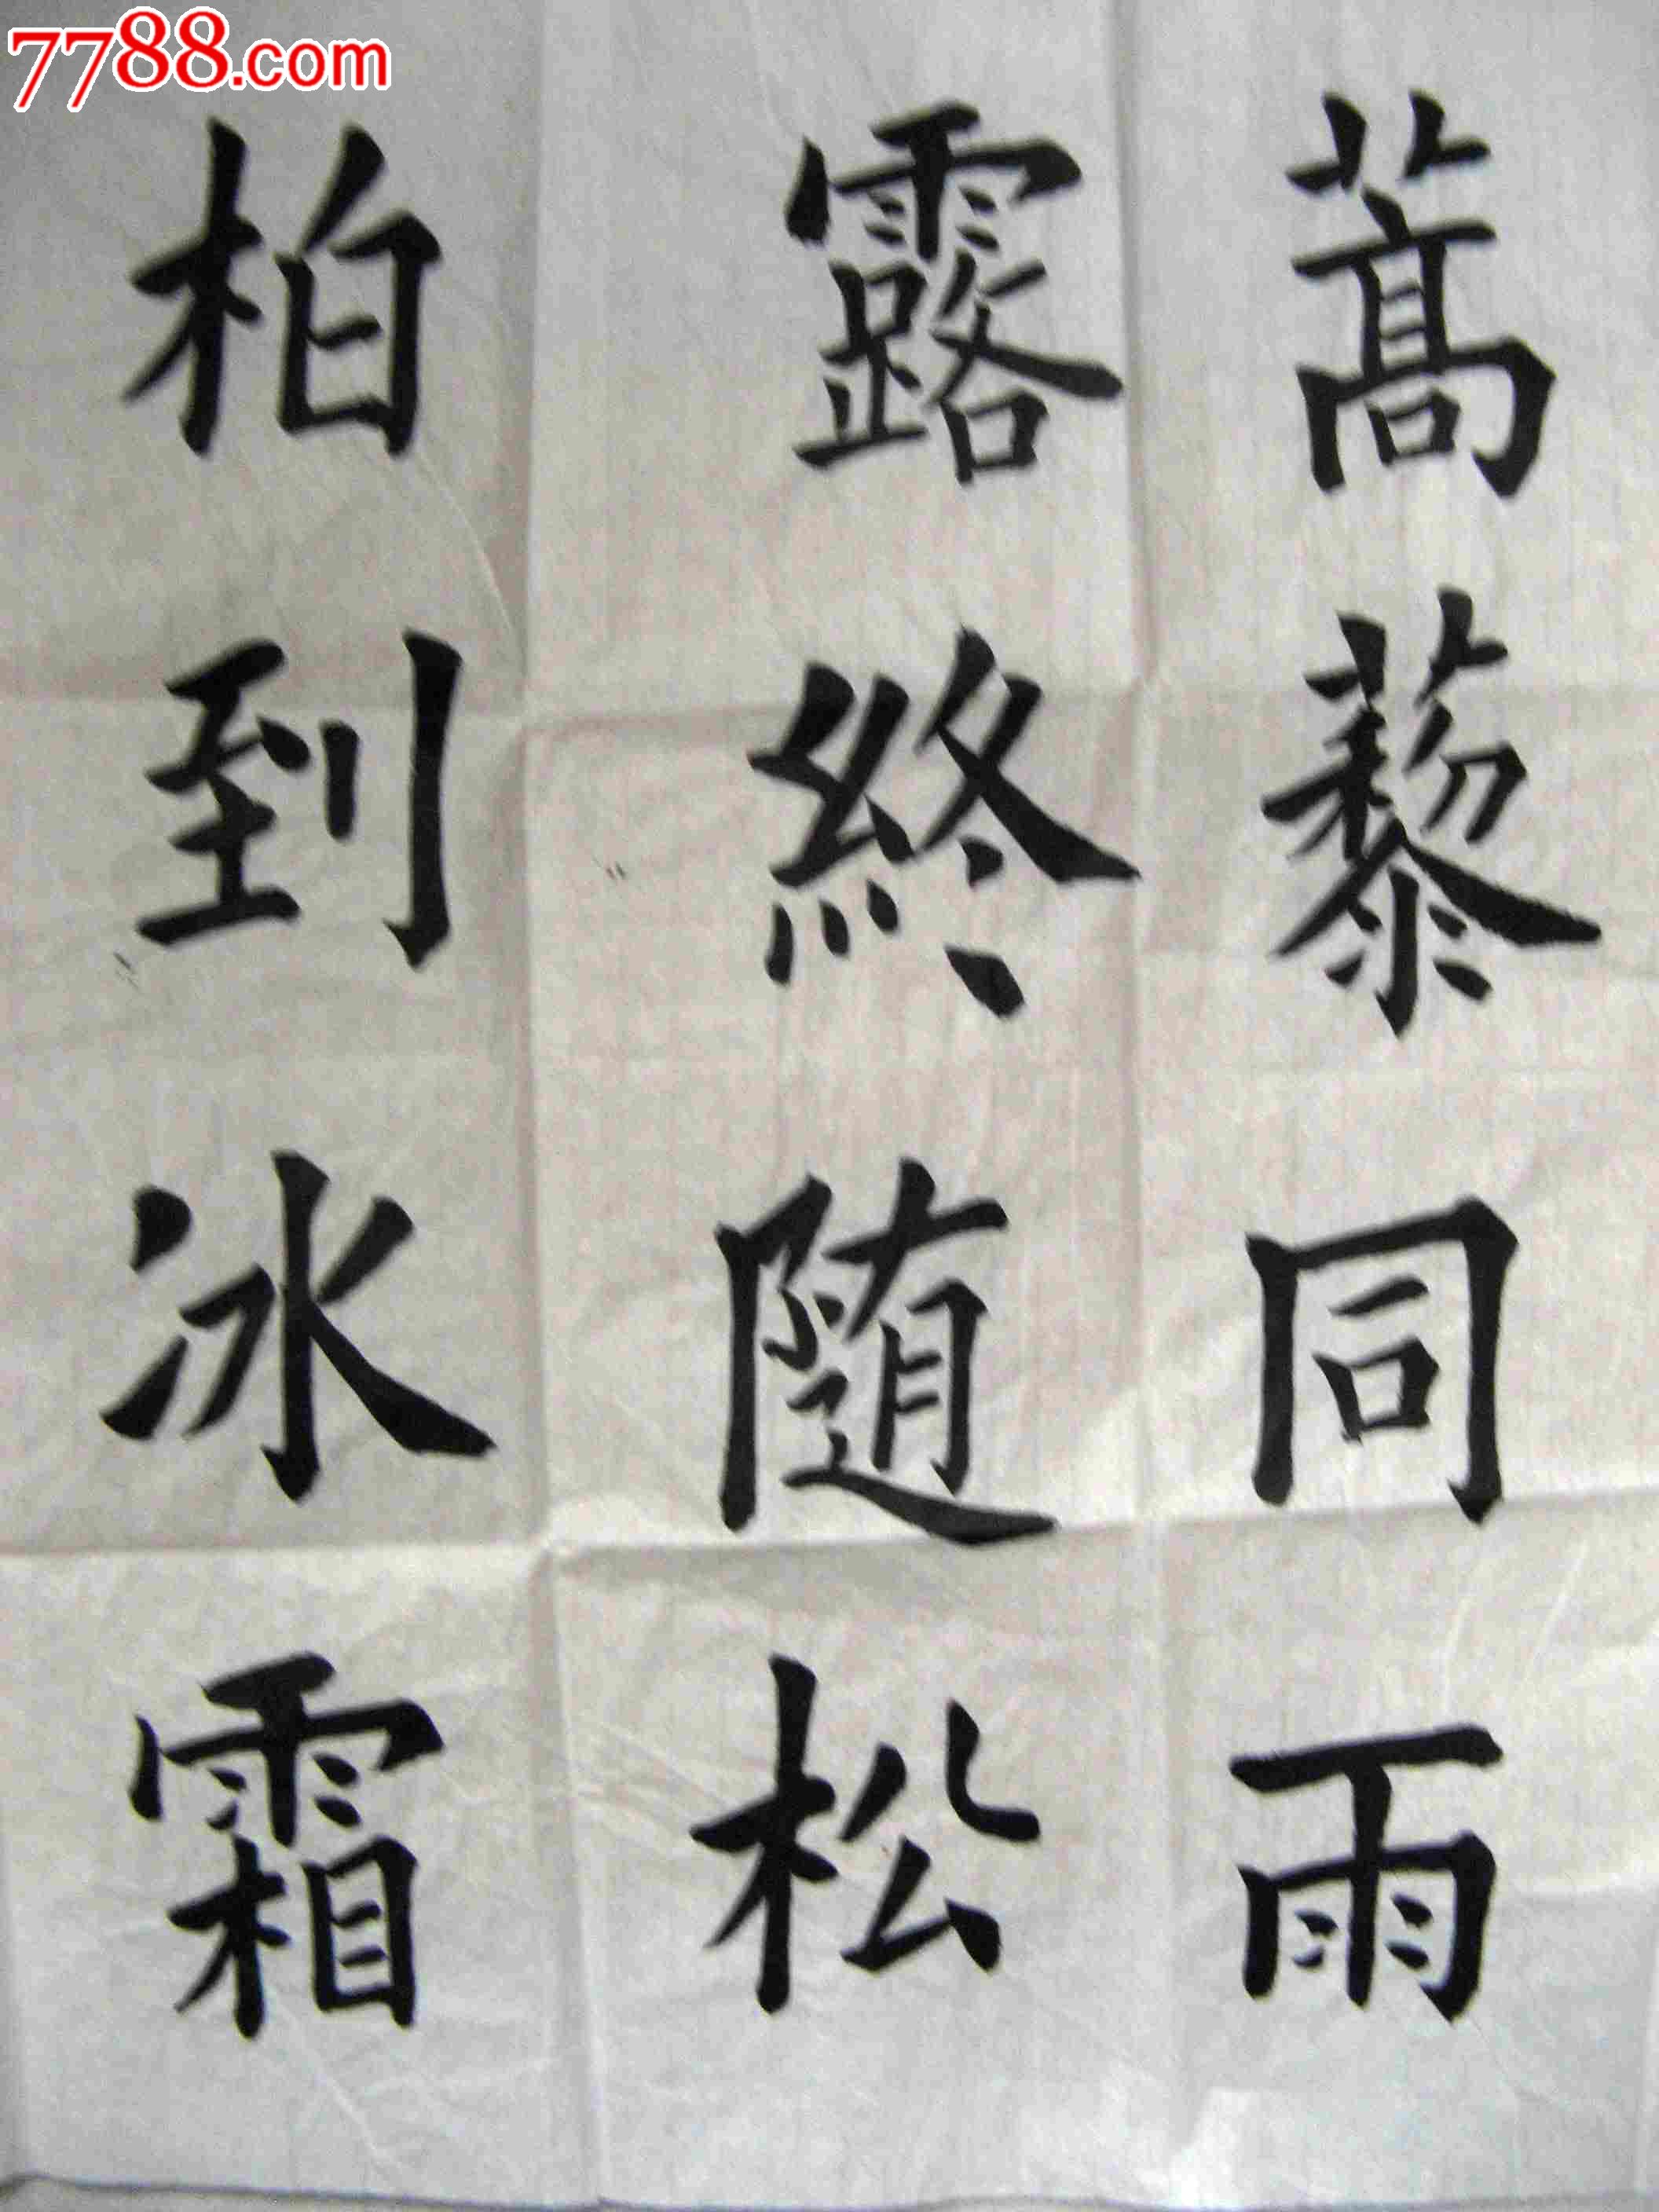 7788.com
蒿藜同雨
露終随松
柏到冰霜